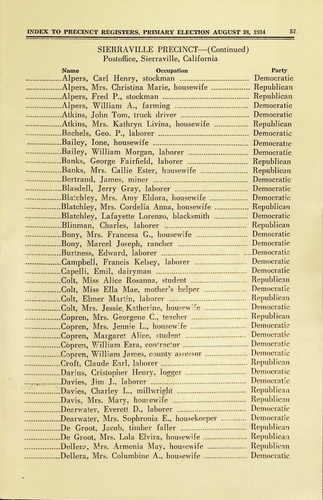 INDEX TO PRECINCT REGISTERS, PRIMARY ELECTION AUGUST 28, 1934 57
SIERRAVILLE PRECINCT—(Continued)
Postoffice, Sierraville, California
Name Occupation Party
Alpers, Carl Henry, stockman Democratic
Alpers, Mrs. Christina Marie, housewife Republican
Alpers, Fred P., stockman Republican
Alpers, William A., farming Democratic
Atkins, John Tom, truck driver Democratic
Atkins, Mrs. Kathryn Livina, housewife Republican
Bachels, Geo. P., laborer Democratic
Bailey, Ione, housewife Democratic
Bailey, William Morgan, laborer Democratic
Banks, George Fairfield, laborer Republican
Banks, Mrs. Callie Ester, housewife Republican
Bertrand, James, miner Democratic
Blasdell, Jerry Gray, laborer Democratic
Blatchley, Mrs. Amy Eldora, housewife Democratic
Blatchley, Mrs. Cordelia Anna, housewife Republican
Blatchley, Lafayette Lorenzo, blacksmith Democratic
Blinman, Charles, laborer Republican
Bony, Mrs. Francesa G., housewife Democratic
Bony, Marcel Joseph, rancher Democratic
Burtness, Edward, laborer Democratic
Campbell, Francis Kelsey, laborer Democratic
Capelli, Emil, dairyman Democratic
Colt, Miss Alice Rosanna, student Republican
Colt, Miss Ella Mae, mother's helper Democratic
Colt, Elmer Martin, laborer Republican
Colt, Mrs. Jessie Katherine, housewife Democratic
Copren, Mrs. Georgene C., teacher Republican
Copren, Mrs. Jennie L., housewife Democratic
Copren, Margaret Alice, student Democratic
Copren, William Ezra, contractor Democratic
Copren, William James, county assessor Democratic
Croft, Claude Earl, laborer Republican
Darius, Cristopher Henry, logger Democratic
Davies, Jim J., laborer Democratic
Davies, Charley L., millwright Republican
Davis, Mrs. Mary, housewife Republican
Dearwater, Everett D., laborer Democratic
Dearwater, Mrs. Sophronia E., housekeeper Democratic
De Groot, Jacob, timber faller Republican
De Groot, Mrs. Lola Elvira, housewife Republican
Dellera, Mrs. Armenia May, housewife Republican
Dellera, Mrs. Columbine A., housewife Democratic